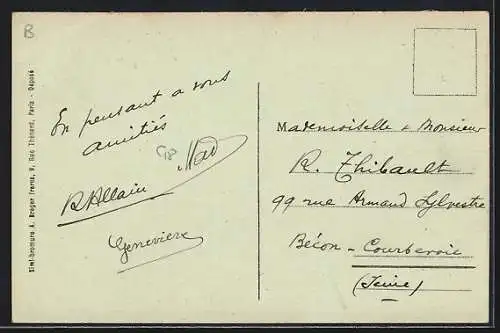 B
Simi-bromure A. Breger frères, 9, Rue Thénard, Paris - Déposé
En pensant a vous
amitiés
Mad
R Allain
Geneviève
Mademoiselle & Monsieur
R. Thibault
99 rue Armand Sylvestre
Bécon - Courbevoie
(Seine)